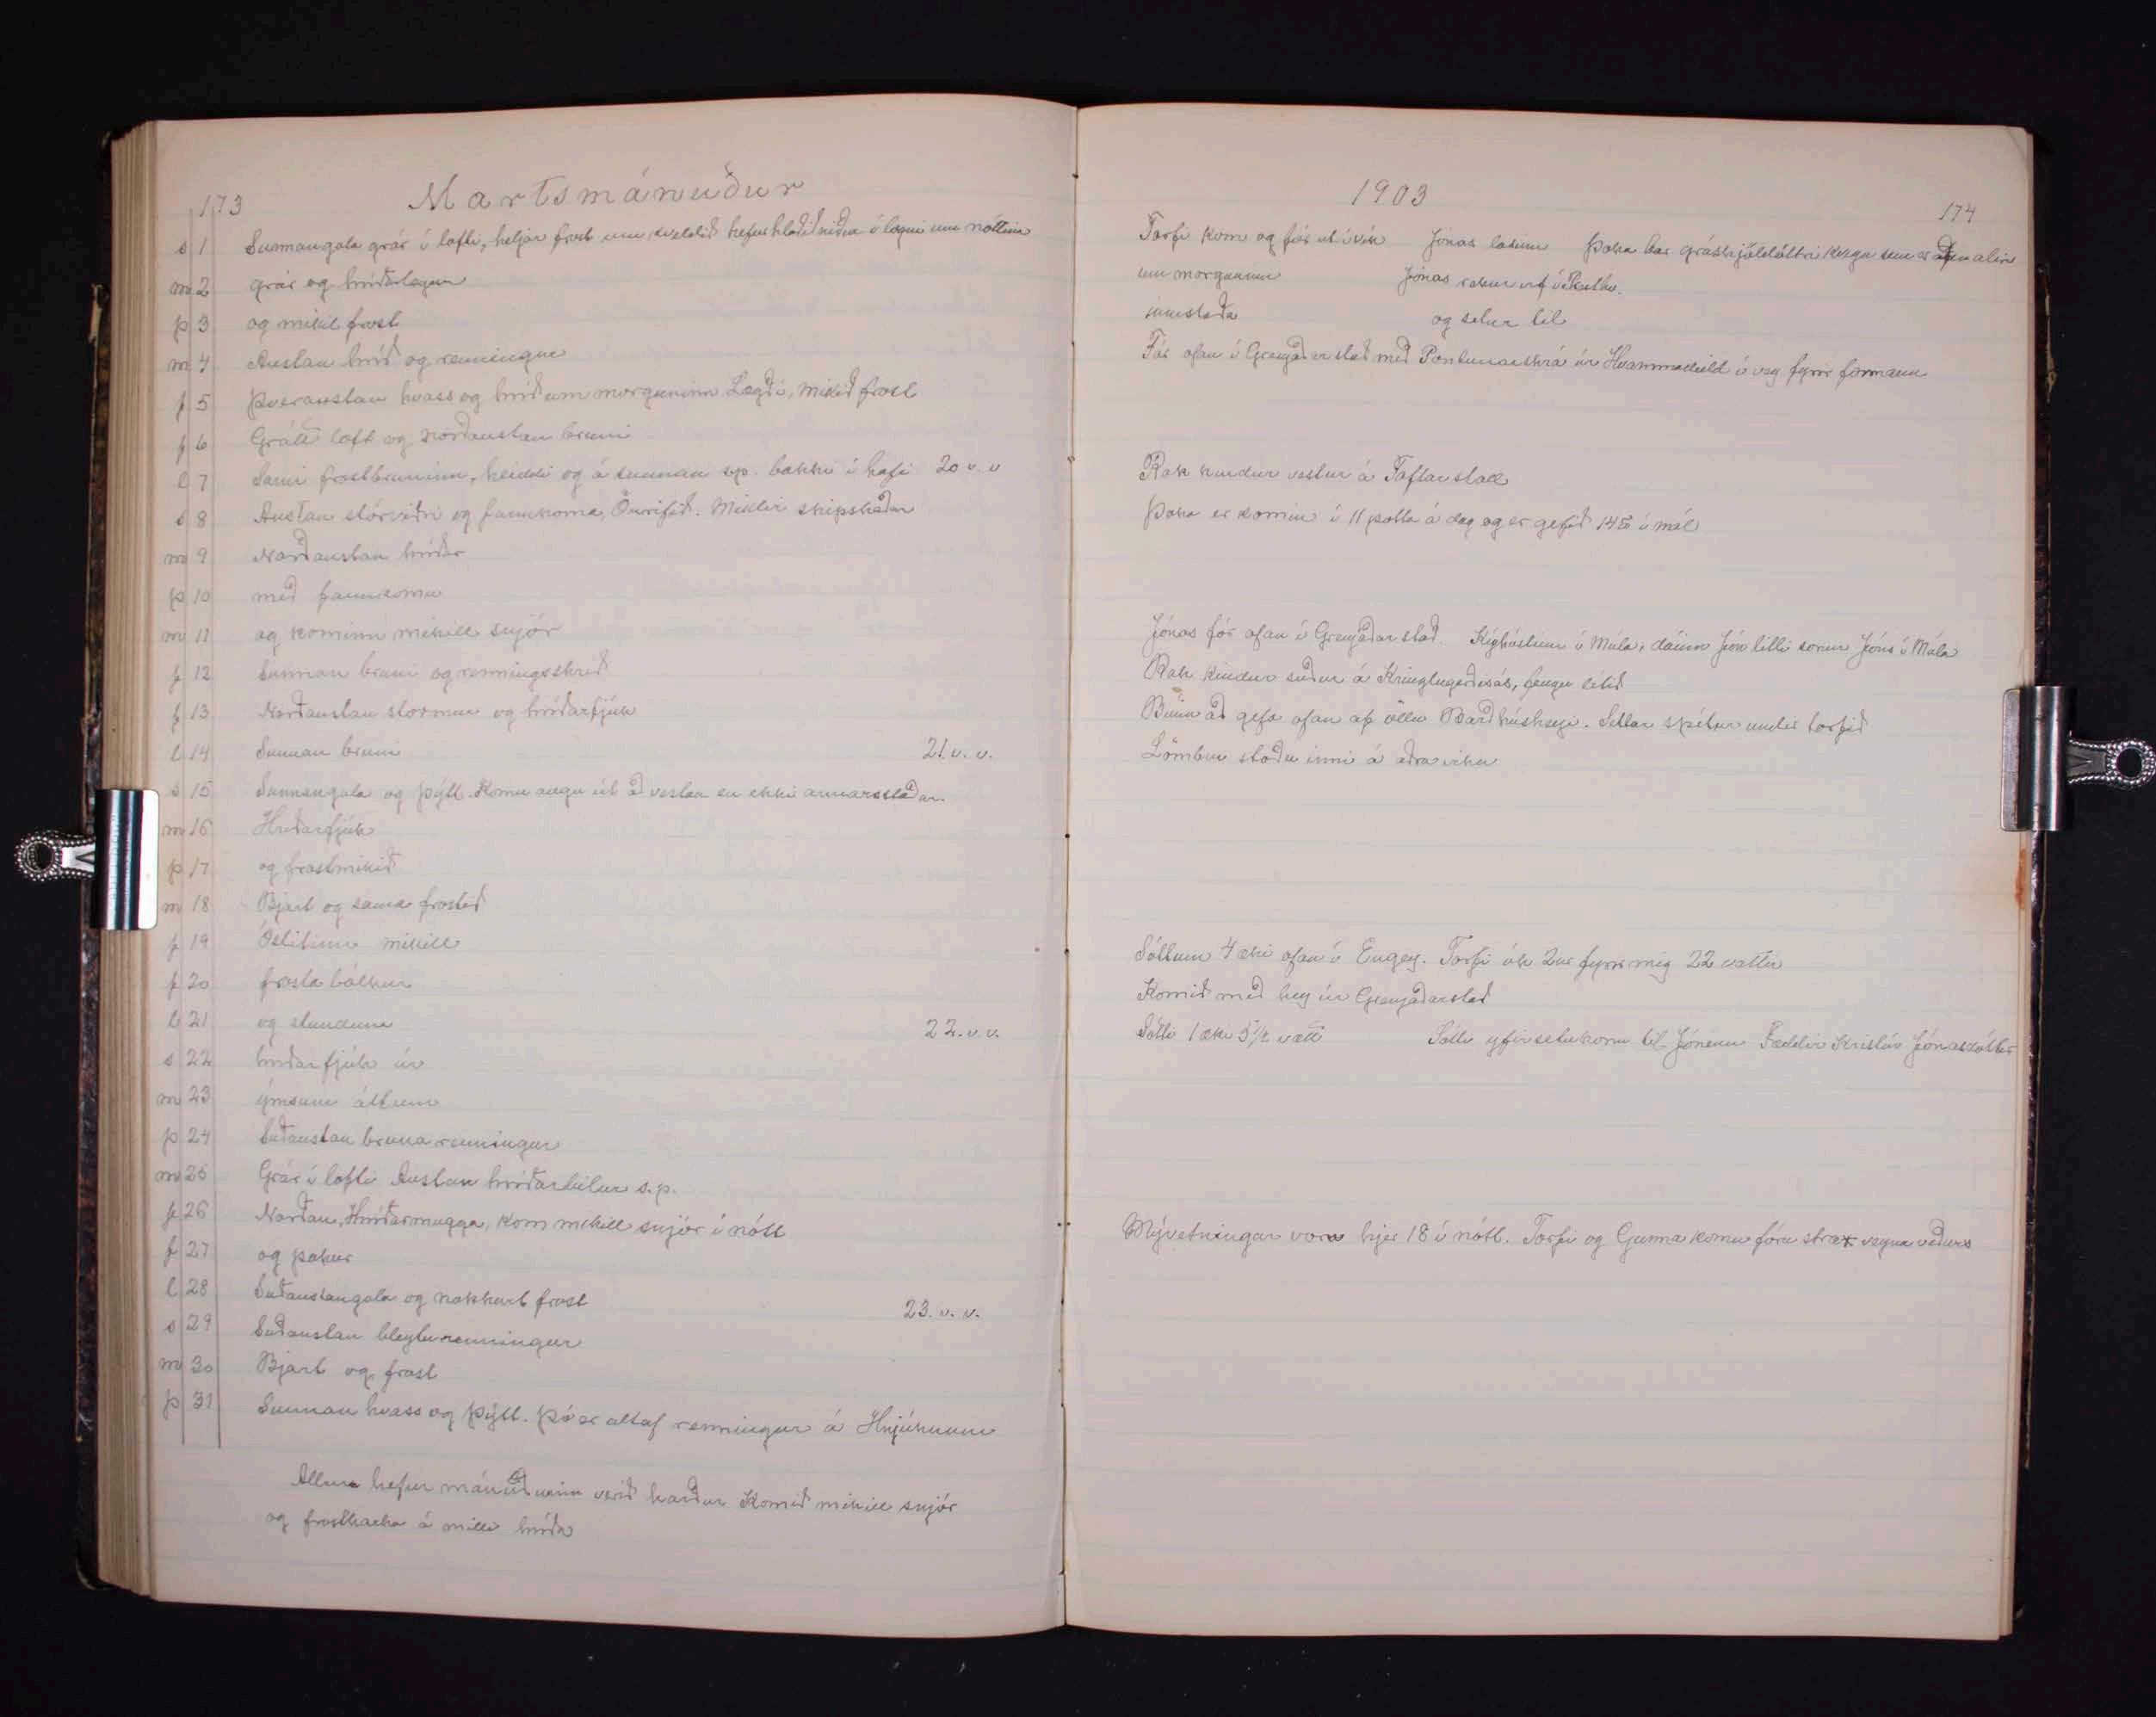 173
Martsmánuður
s 1 Sunnangola grár í lofti, heljar frost um kveldið hefur hlaðið niður í logni um nóttina
m 2 grár og hríðarlegur
þ 3 og mikil frost
m 4 Austan hríð og renningur
f 5 Þveraustan hvass og hríð um morguninn Lægði, mikið frost
f 6 Grátt loft og norðaustan bruni
l 7 Sami frostbruninn, heiddi og á sunnan s.p. bakki í hafi 20 v. v
s 8 Austan stórviðri og fannkoma, Öurifið. Miklir skipskaðar
m 9 Norðaustan hríðar
þ 10 með fannkomu
m 11 og kominn mikill snjór
f 12 Sunnan bruni og renningsskrið
f 13 Norðaustan stormur og hríðarfjúk
l 14 Sunnan bruni 21. v. v.
s 15 Sunnangola og þýtt. Komu augu út að vestan en ekki annarsstaðar.
m 16 Hríðarfjúk
þ 17 og frostmikið
m 18 Bjart og sama frostið
f 19 Óslitinn mikill
f 20 frosta bálkur
l 21 og stundum 22. v. v.
s 22 hríðarfjúk úr
m 23 ýmsum áttum
þ 24 Suðaustan bruna renningur
m 25 Grár í lofti Austan hríðarbilur s.p.
f 26 Norðan, Hríðarmugga, kom mikill snjór í nótt
f 27 og þokur
l 28 Suðaustangola og nokkurt frost 23. v. v.
s 29 Suðaustan bleyturenningur
m 30 Bjart og frost
þ 31 Sunnan hvass og þýtt. Þó er altaf renningur á Hnjúknum
Allur hefur mánuðurinn verið harður Komið mikill snjór
og frostharka á milli hríða
1903
174
Torfi kom og fór út í vík Jónas lasinn Þoka bar gráskjöldóttri kvígu sem er alin
um morguninn Jónas rekur
innistaða og setur til
Fór ofan í Grenjaðarstað með Pöntunarskrá úr Hvammadeild í veg fyrir formann
Rak kindur vestur á Taftarstall
Þoka er komin í 11 potta á dag og er gefið 145 í mál
Jónas fór ofan í Grenjaðarstað. Kíghóstinn í Múla, dáinn Jón litli sonur Jóns í Múla
Rak kindur suður á Kringlugerðisás, fengu lítið
Búin að gefa ofan af öllu Barðhúsheyi. Settar spítur undir torfið
Lömbin stóðu inni á aðra viku
Sóttum 4 æki ofan í Engey. Torfi ók 2ur fyrir mig 22 vættir
Komið með hey úr Grenjaðarstað
Sótti 1 æki 5 1/2 vætt Sótti yfirsetukonu til Jónínu Fæddist Kristín Jónasdóttir
Mývetningar voru hjer 18 í nótt. Torfi og Gunna komu fóru strax vegna veðurs